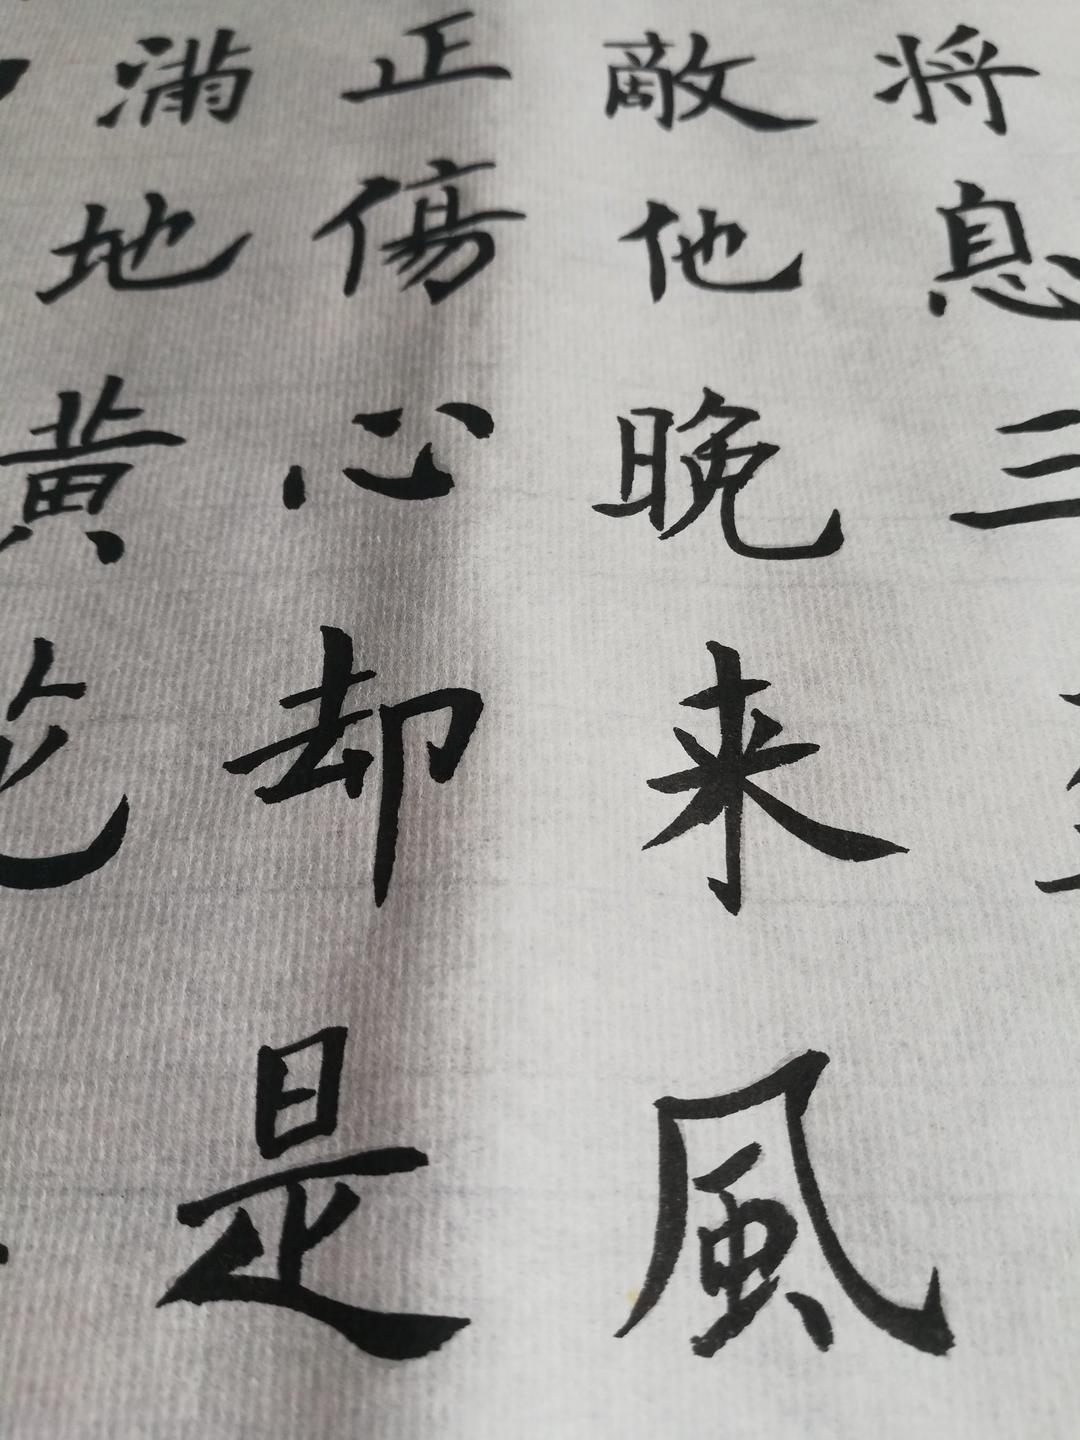 将息三
敵他晚来風
正傷心却是
满地黄花